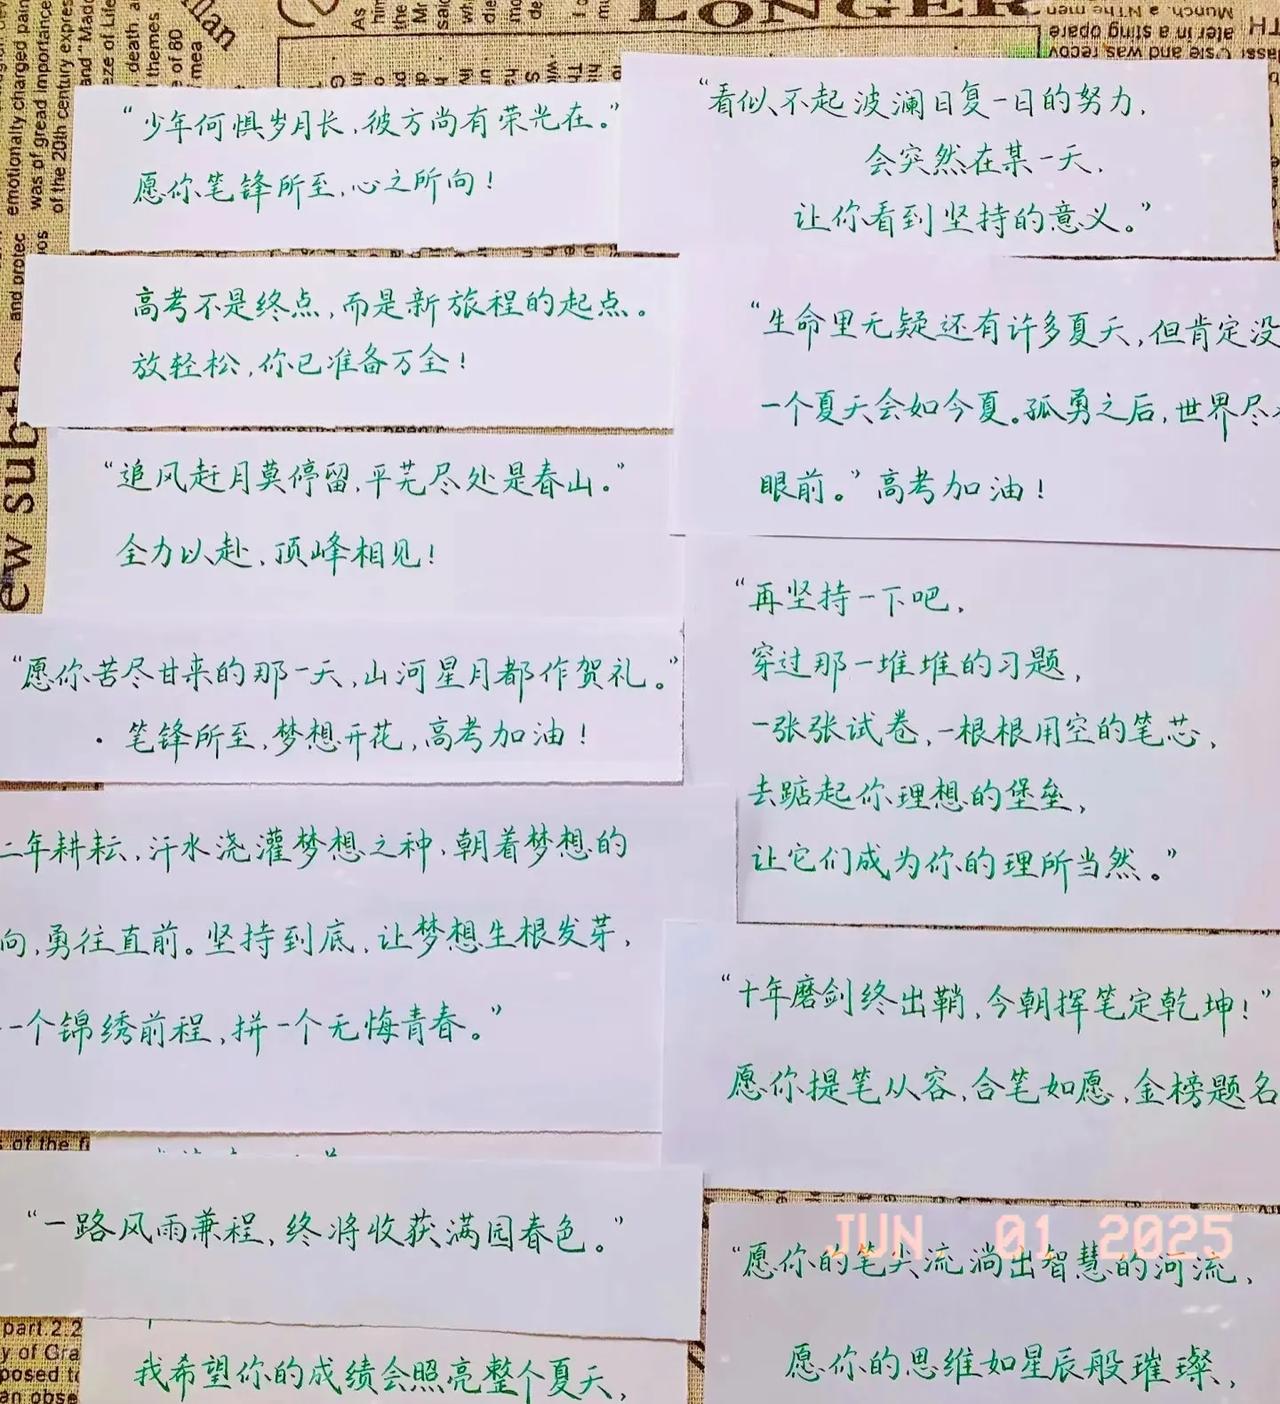 “少年何惧岁月长,彼方尚有荣光在。”
愿你笔锋所至,心之所向!
高考不是终点,而是新旅程的起点。
放轻松,你已准备万全!
“追风赶月莫停留,平芜尽处是春山。”
全力以赴,顶峰相见!
“愿你苦尽甘来的那一天,山河星月都作贺礼。”
· 笔锋所至,梦想开花,高考加油!
年耕耘,汗水浇灌梦想之种,朝着梦想的
向,勇往直前。坚持到底,让梦想生根发芽,
一个锦绣前程,拼一个无悔青春。”
“一路风雨兼程,终将收获满园春色。”
我希望你的成绩会照亮整个夏天,
“看似不起波澜日复一日的努力,
会突然在某一天,
让你看到坚持的意义。”
“生命里无疑还有许多夏天,但肯定没
一个夏天会如今夏。孤勇之后,世界尽
眼前。”高考加油!
“再坚持一下吧,
穿过那一堆堆的习题,
一张张试卷,一根根用空的笔芯,
去踮起你理想的堡垒,
让它们成为你的理所当然。”
“十年磨剑终出鞘,今朝挥笔定乾坤!”
愿你提笔从容,合笔如愿,金榜题名
JUN 01 2025
“愿你的笔尖流淌出智慧的河流,
愿你的思维如星辰般璀璨,
LONGER